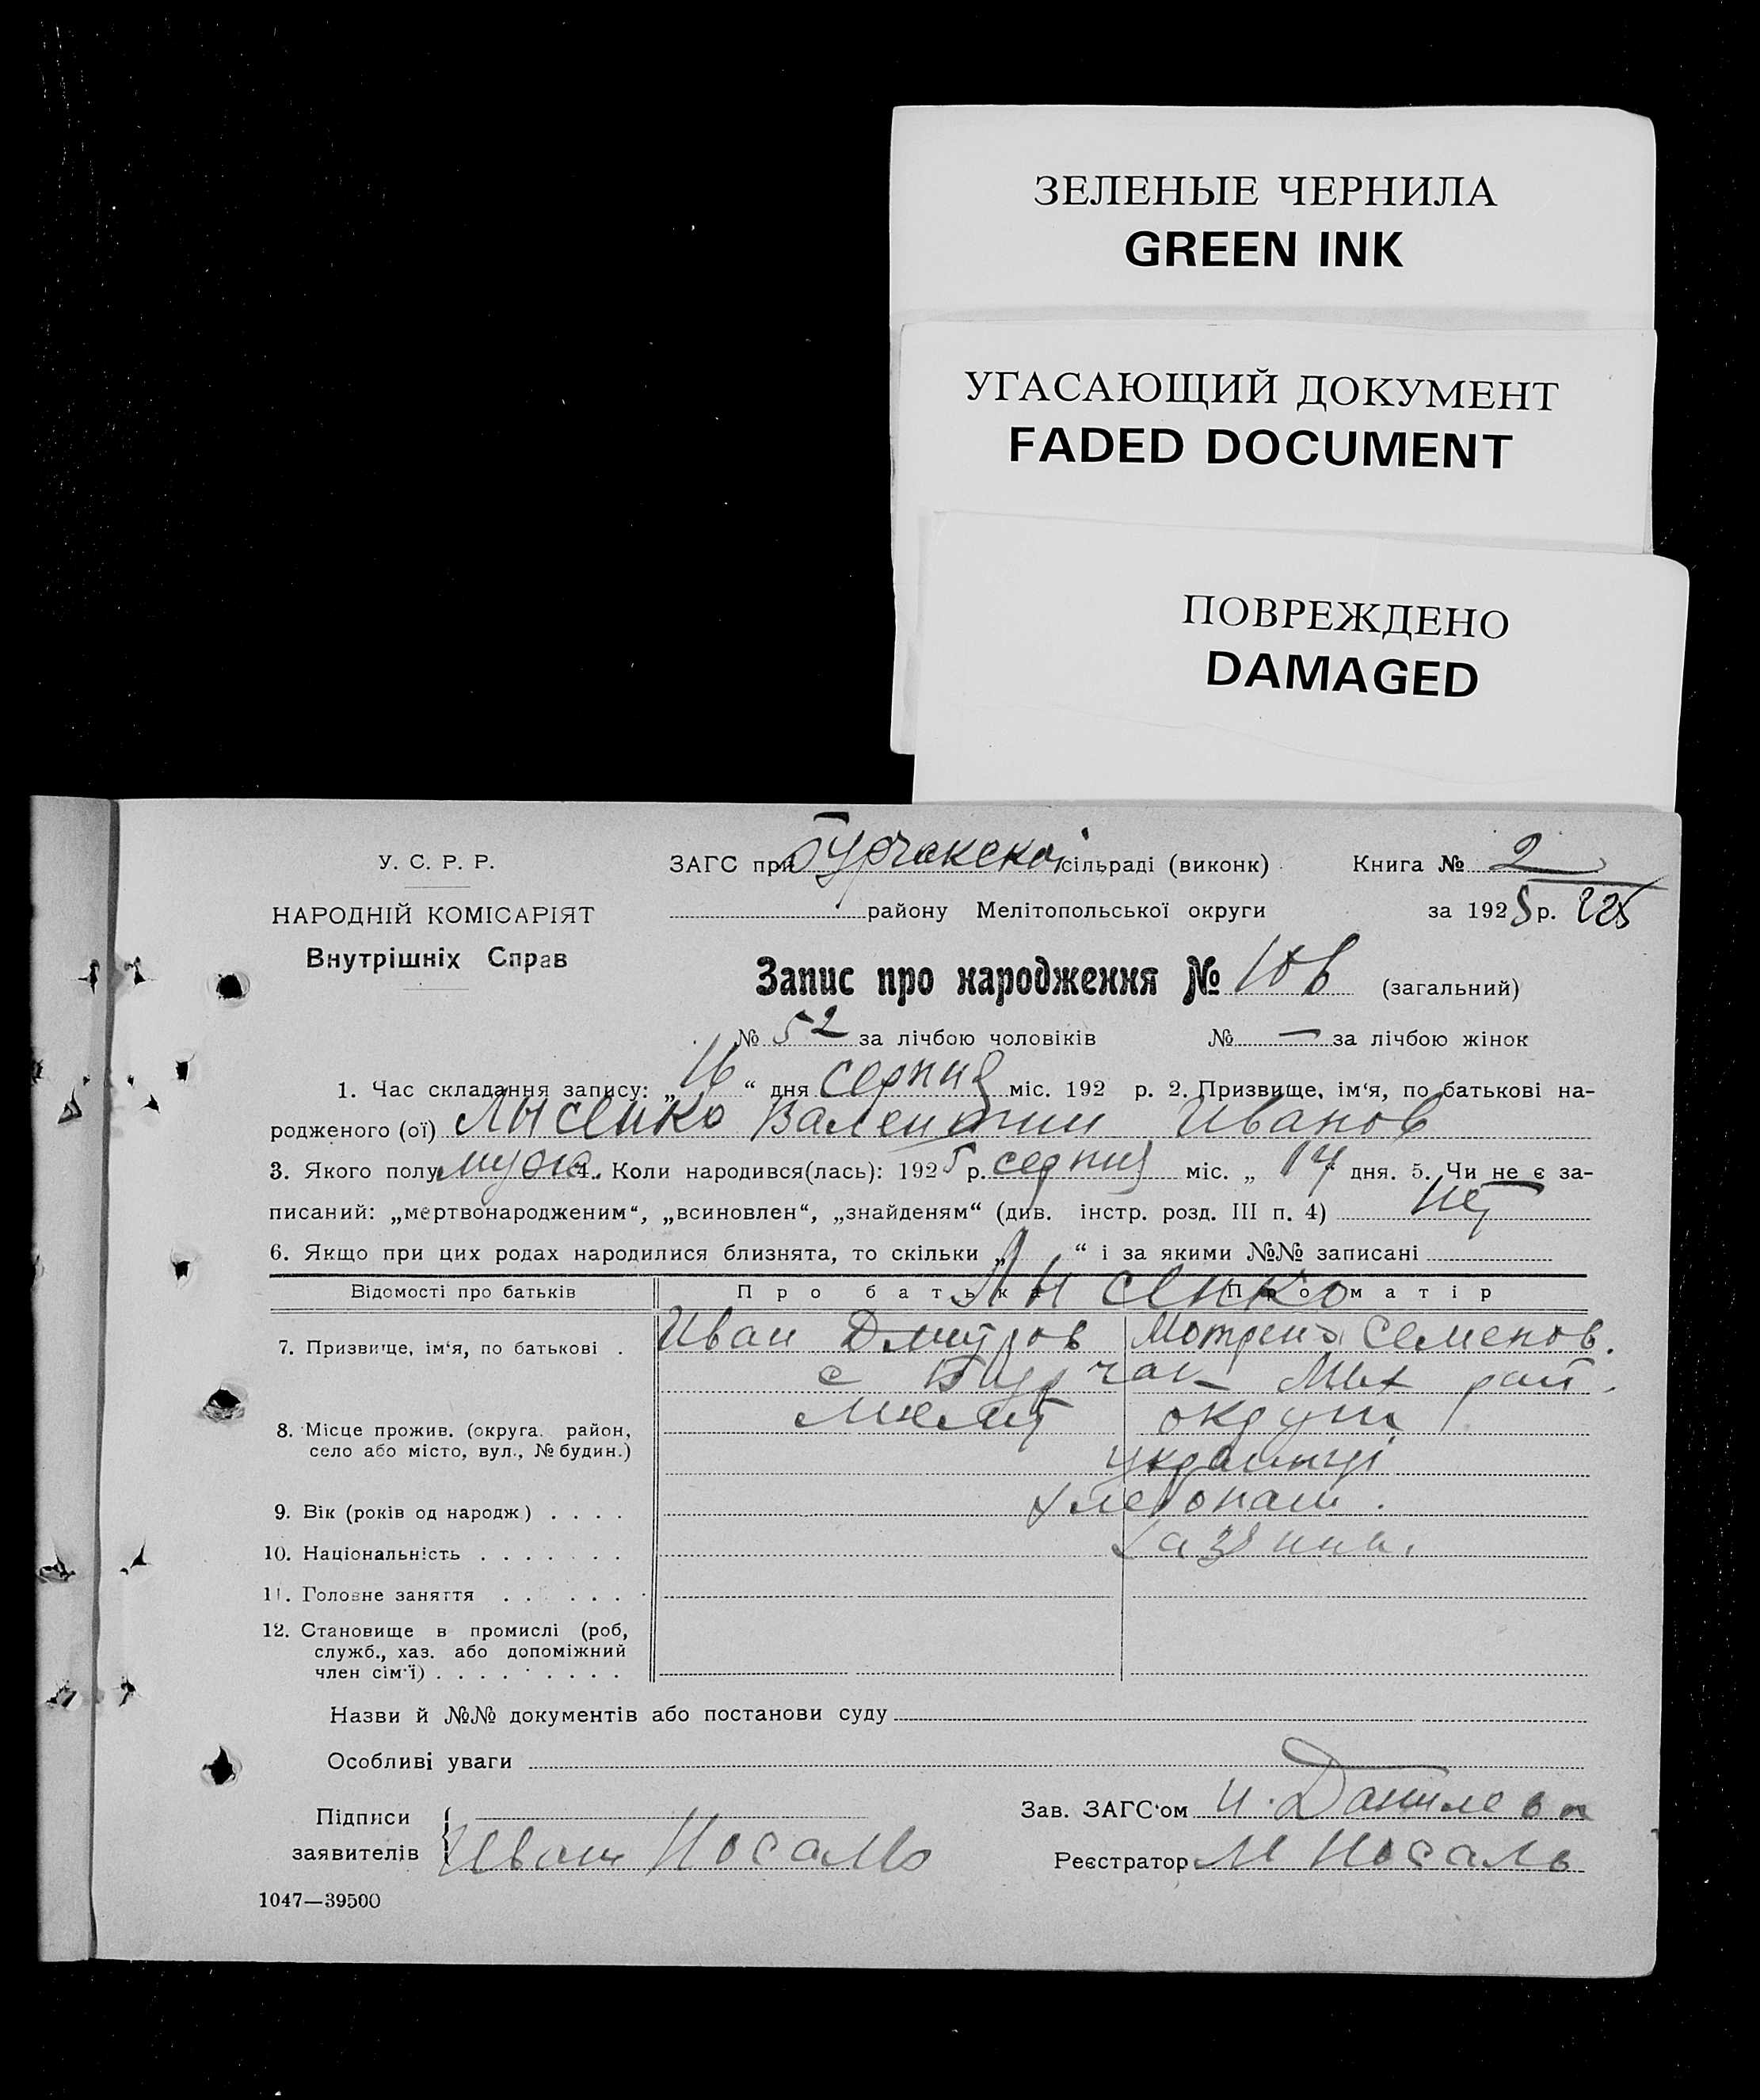 ЗЕЛЕНЫЕ ЧЕРНИЛА
GREEN INK
УГАСАЮЩИЙ ДОКУМЕНТ
FADED DOCUMENT
ПОВРЕЖДЕНО
DAMAGED
У. С. Р. Р.
НАРОДНІЙ КОМІСАРІЯТ
Внутрішніх Справ
ЗАГС при Бурчакской сільраді (виконк) Книга № 2
району Мелітопольської округи за 1925 р. 225
Запис про народження № 106 (загальний)
№ 52 за лічбою чоловіків № — за лічбою жінок
1. Час складання запису: „16“ дня серпня міс. 192 р. 2. Призвище, ім‘я, по батькові на-
родженого (ої) Лысенко Валентин Иванов
3. Якого полу муж. 4. Коли народився(лась): 1925 р. серпня міс. „ 14 дня. 5. Чи не є за-
писаний: „мертвонародженим“, „всиновлен“, „знайденям“ (див. інстр. розд. III п. 4) нет
6. Якщо при цих родах народилися близнята, то скільки „ “ і за якими №№ записані
Відомості про батьків Про батька Про матір
Лысенко
7. Призвище, ім‘я, по батькові . Иван Дмитров Мотрена Семенов.
с Бурчак Мих рай.
8. Місце прожив. (округа. район, село або місто, вул., № будин.) округи
українці
9. Вік (років од народж) . . . . хлебопаш.
10. Національність . . . . . . .
11. Головне заняття . . . . . .
12. Становище в промислі (роб,
служб., хаз. або допоміжний
член сім‘ї) . . . . . . . . .
Назви й №№ документів або постанови суду
Особливі уваги
Підписи
заявителів Иван Носаль
Зав. ЗАГС‘ом И. Данилевс
Реєстратор И Носаль
1047—39500